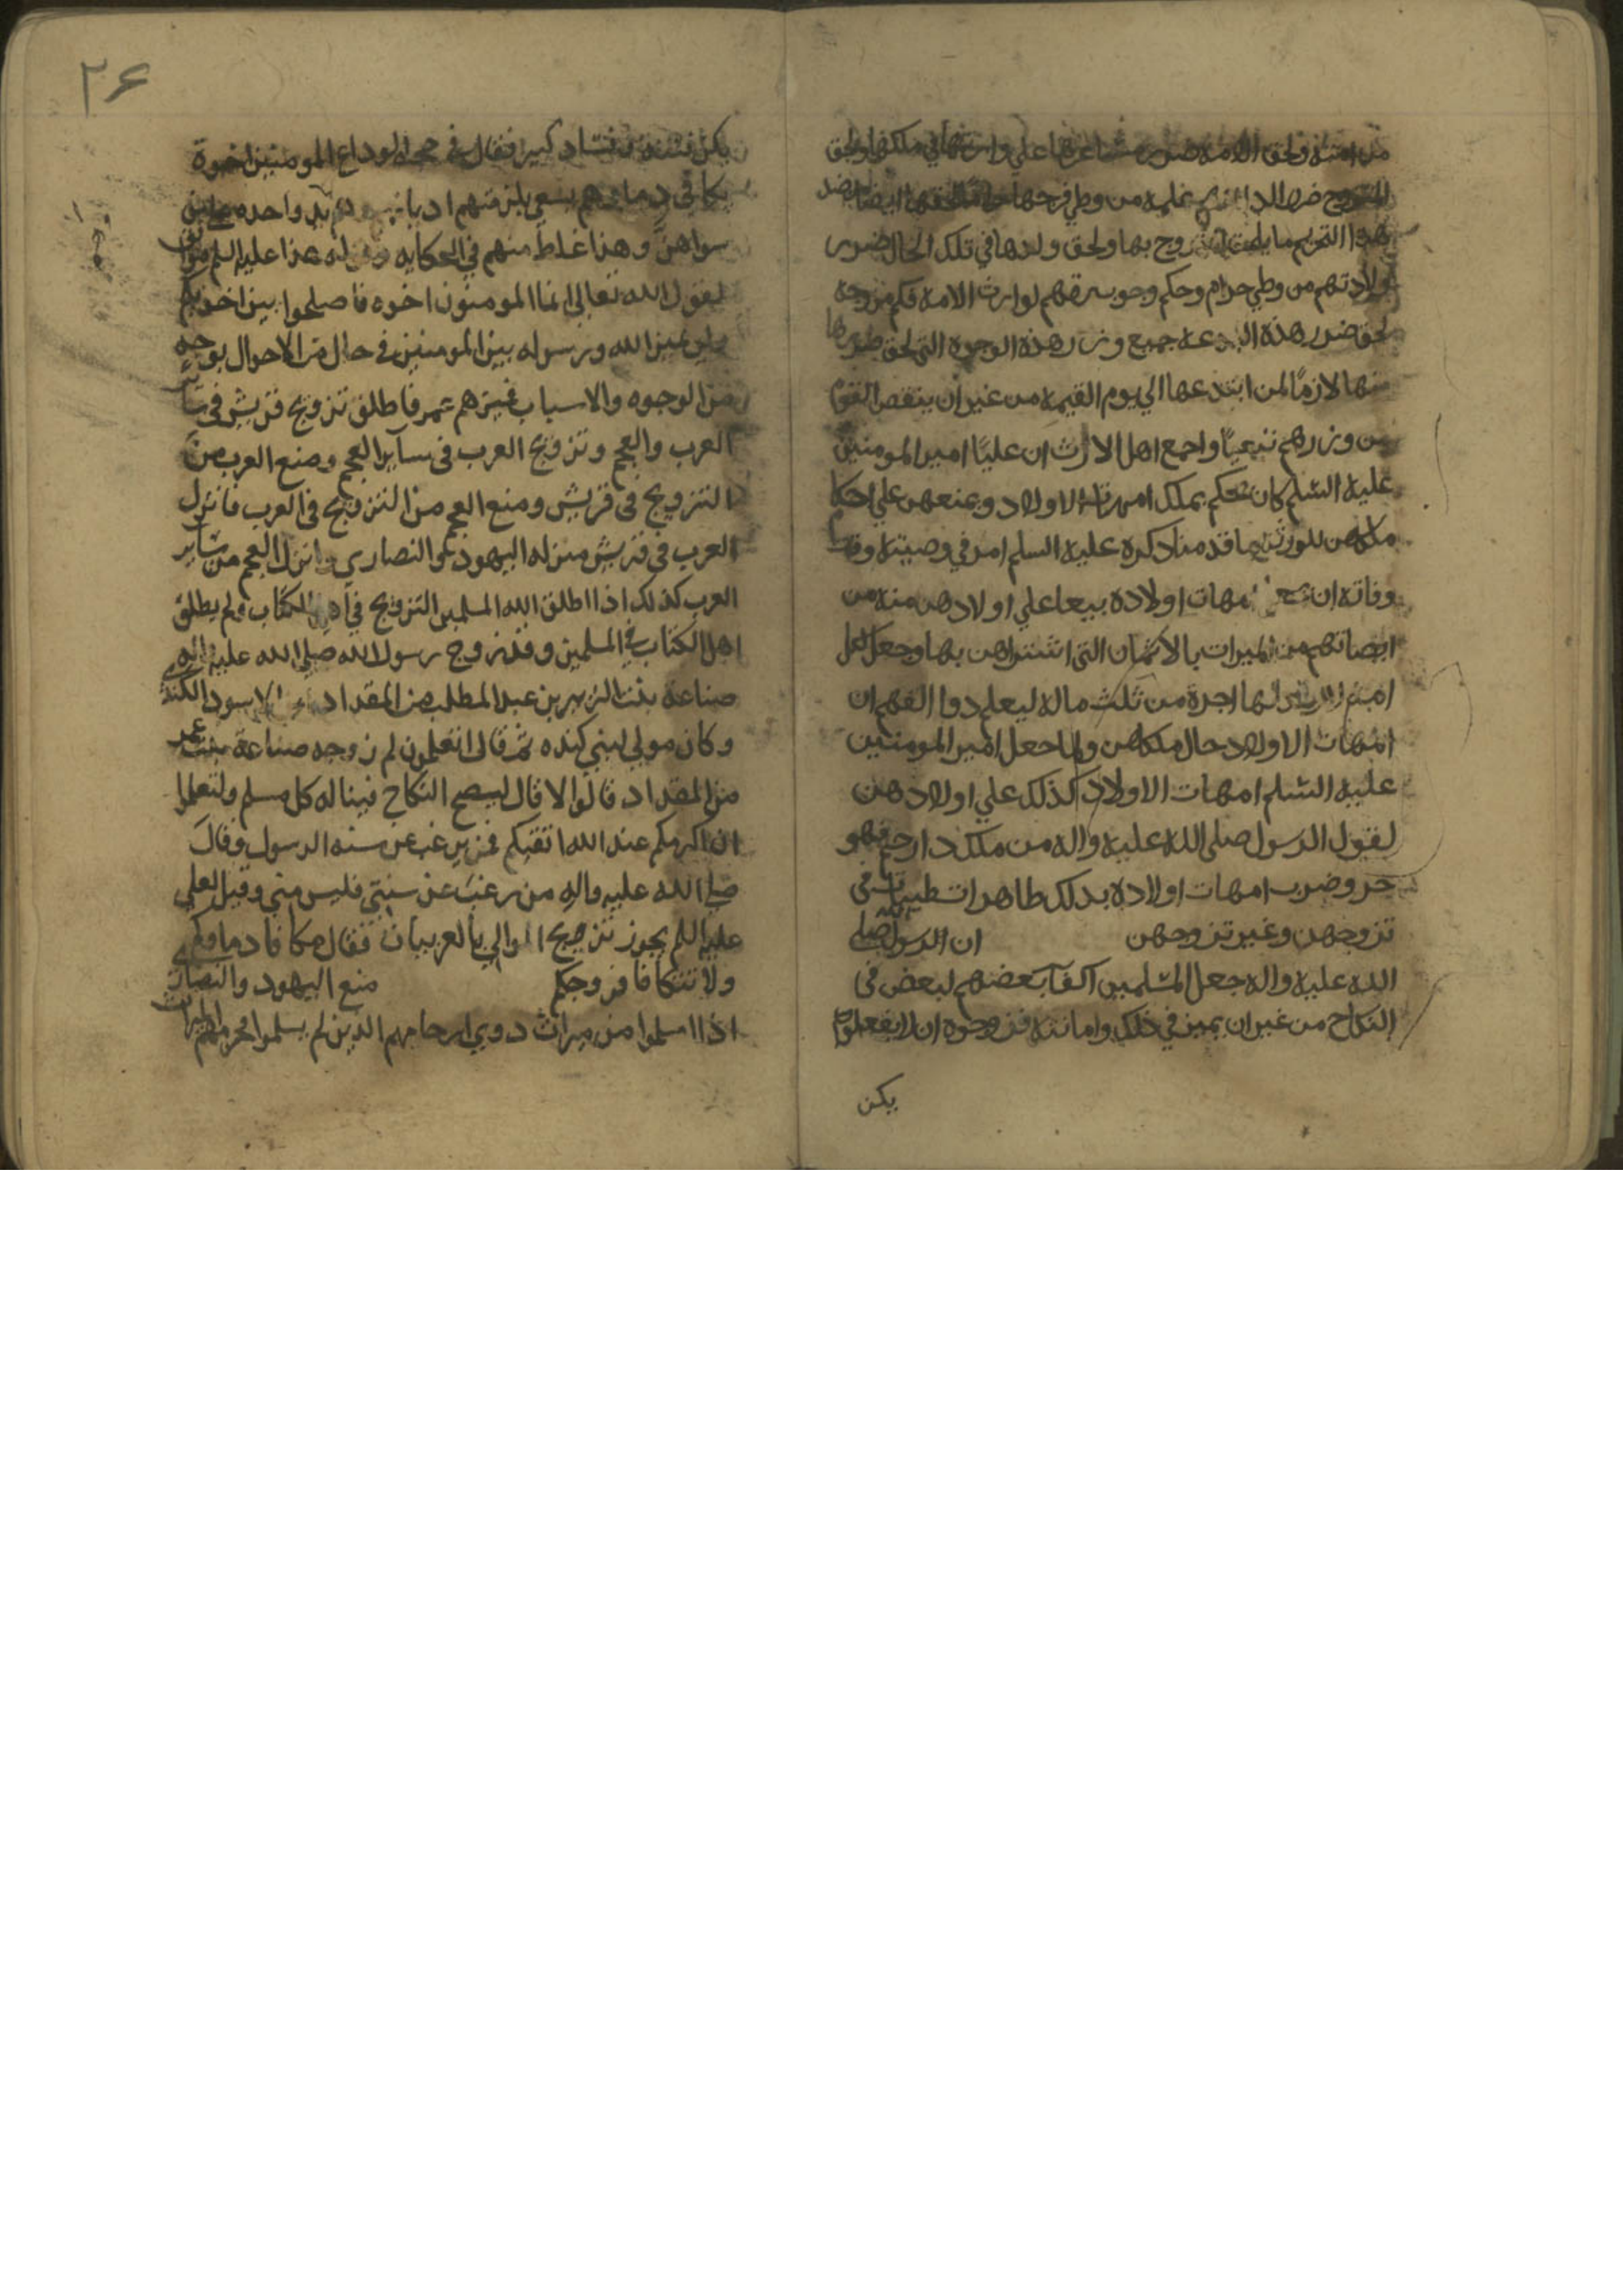 من امته ولحق الامة ضرر على وارثها في ملكها ولحق
المتزوج ضرر الد عليه من وطي فرجها ايضا
بهذا التحريم ما تزوج بها ولحق ولدها في تلك الحال ضرر
ولادتهم من وطي حرام وحكم وجوب رقهم لوارث الامة فكم من وجه
لحق ضرر هذه البدعة جميع وزر هذه الوجوه التي لحق ضررها
منها لازما لمن ابتدعها الي يوم القيمة من غير ان ينقص القوم
من وزرهم شيئا واجمع اهل الاثر ان عليا امير المومنين
عليه السلم كان يحكم بملك امهات الاولاد وبيعهن علي احكام
ملكهن للورثة ما قدمنا ذكره عليه السلم امر في وصيته وقت
وفاته ان امهات اولاده بيعا علي اولادهن منه من
انصبائهم من الميراث بالاثمان التي اشتراهن بها وجعل لكل
لها اجرة من ثلث ماله ليعلم ذوا الفهم ان
امهات الاولاد حال ملكهن ولما جعل امير المومنين
عليه السلم امهات الاولاد كذلك علي اولادهن
لقول الرسول صلى الله عليه واله من ملك ذا رحم فهو
حر وضرب امهات اولاده بذلك طاهرات طيبات في
تزوجهن وغير تزوجهن ان الرسول صلى
الله عليه واله جعل المسلمين اكفآ بعضهم لبعض في
النكاح من غير ان يميز في ذلك وامانته فزوجوه ان لا تفعلوه
يكن
۲۶
يكن فتنة وفساد كبير فقال في حجة الوداع المومنين اخوة
تكافى دماهم يسعي بذمتهم ادناهم وهم يد واحده علي من
سواهن وهذا غلط منهم في الحكايه وقوله هذا عليه السلم موافق
لقول الله تعالي انما المومنون اخوه فاصلحوا بين اخويكم
ولم يميز الله ورسوله بين المومنين في حال من الاحوال بوجه
من الوجوه والاسباب فميزهم عمر فاطلق تزويج قريش في سآير
العرب والعجم وتزويج العرب في سآير العجم ومنع العرب من
التزويج في قريش ومنع العجم من التزويج في العرب فانزل
العرب في قريش منزله اليهود والنصاري وانزل العجم من سآير
العرب كذلك اذا اطلق الله المسلمين التزويج في اهل الكتاب ولم يطلق
اهل الكتاب في المسلمين وقد زوج رسول الله صلى الله عليه واله
ضباعة بنت الزبير بن عبد المطلب من المقداد بن الاسود الكندي
وكان مولي لبني كنده ثم قال اتعلمون لم زوجه ضباعة بنت عمي
من المقداد قالوا لا قال ليصح النكاح فيناله كل مسلم ولتعلموا
ان اكرمكم عند الله اتقيكم فمن يرغب عن سنه الرسول وقال
صلى الله عليه واله من رغب عن سنتي فليس مني وقيل لعلي
عليه السلم يجوز تزويج الموالي بالعربيات فقال تتكافا دماوكم
ولا تتكافا فزوجكم منع اليهود والنصاري
اذا اسلموا من ميراث ذوي ارحامهم الذين لم يسلموا فحرمهم الميراث